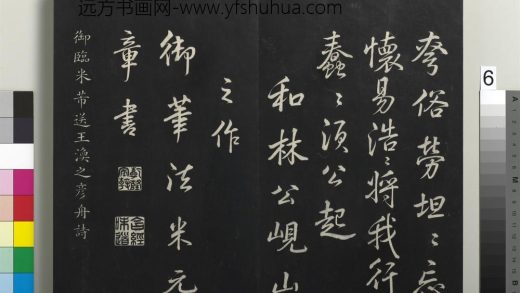 远方书画网-www.yfshuhua.com
夸俗劳坦〻忘
懷易浩〻將我行
蠢〻須公起
和林公峴山
之作
御筆法米元
章書
御臨米芾送王渙之彦舟詩
6